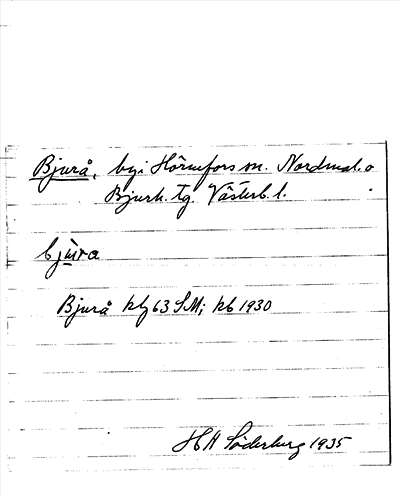 Bjurå, by i Hörnefors sn. Nordmal. o
Bjurh. tg. Västerb. l.
bjùra
Bjurå hlj 63 SM; kb 1930
H H Söderberg 1935